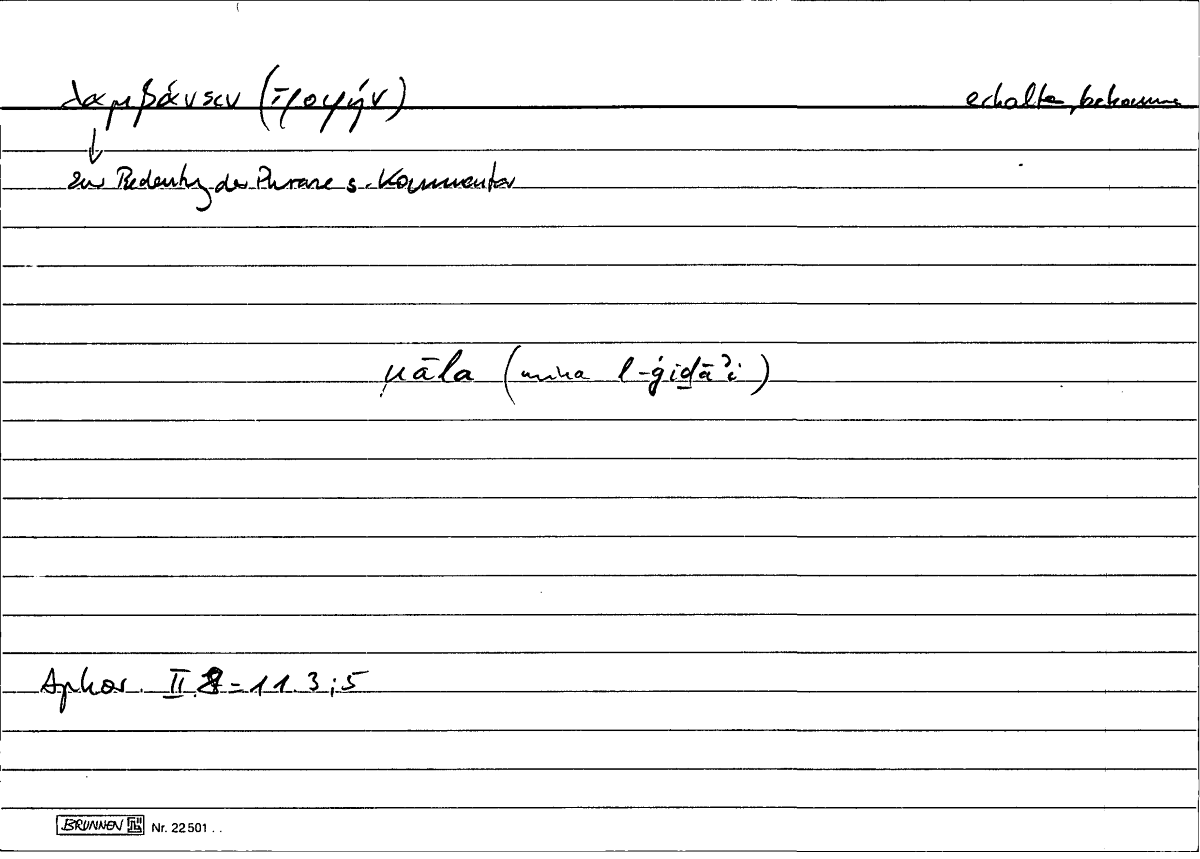 λαμβάνειν (τροφήν) erhalten, bekommen
↓
zur Bedeutung der Phrase s. Kommentar
nāla (mina l-ġiḏāʾi)
Aphor. II 8 = 11.3 ; 5
BRUNNEN Nr. 22501 . .